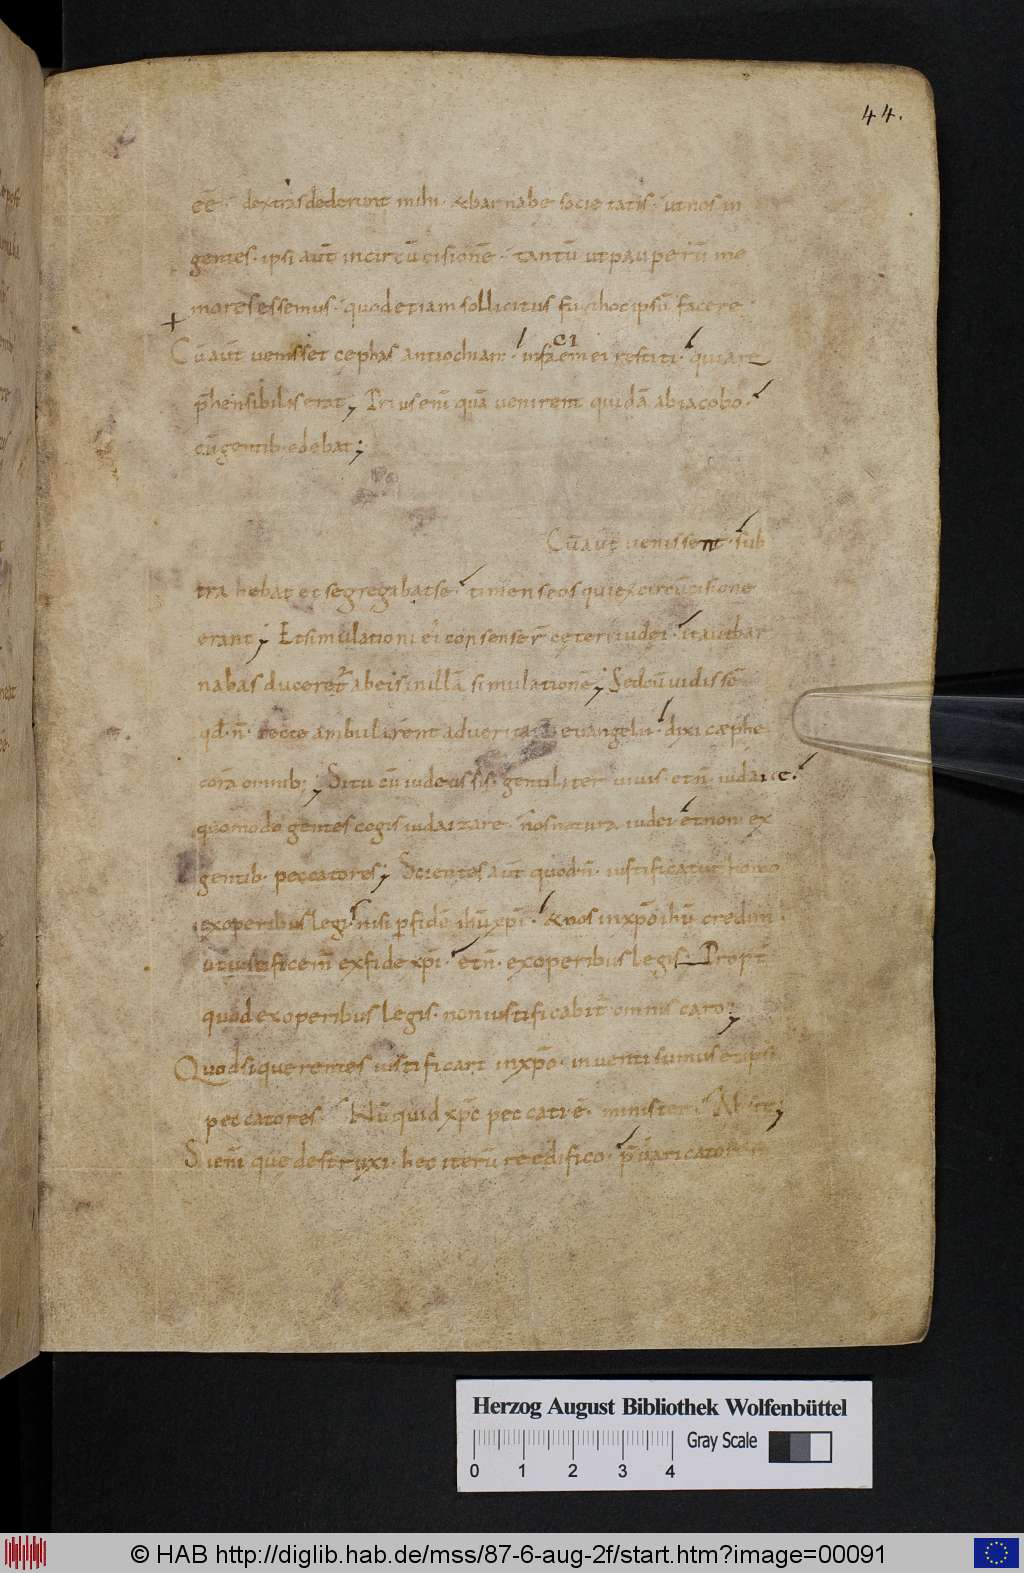 44.
eē· dextras dederunt mihi· & barnabe societatis· ut nos in
gentes· ipsi aut̄ in circūcisione· tantū ut pauperū me
mores essemus· quod etiam sollicitus fui hoc ipsū facere
Cū aut̄ venisset cephas antiochiam· in faciem ei restiti· quia re
p̄hensibilis erat; Prius eni quā venirent quidā ab iacobo·
cū gentib· edebat;
Cū aut̄ venissent· sub
trahebat et segregabat se· timens eos qui ex circūcisione
erant; Et simulationi ei consenser̄ ceteri iudei· ita ut bar
nabas duceret̄ ab eis in illā simulationē; Sed cū vidissē
qd· n̄· recte ambularent ad veritatē evangelii· dixi cæphe
corā omnib; Si tu cū iudeus sis· gentiliter vivis· et n̄· iudaice·
quomodo gentes cogis iudaizare· Nos natura iudei et non· ex
gentib· peccatores; Scientes aut̄ quod n̄· iustificatur homo
ex operibus legis nisi p fidē ihū xp̄i· & nos in xp̄o ihū credim·
ut iustificem̄ ex fide xp̄i· et n̄· ex operibus legis· Propt̄
quod ex operibus legis· non iustificabit̄ omnis caro;
Quod si querentes iustificari in xp̄o· inventi sumus et ipsi
peccatores Nūquid xp̄c peccati ē· minister· Absit;
Si eni que destruxi· hec iterū reedifico· p̄varicatorem
Herzog August Bibliothek Wolfenbüttel
Gray Scale
0 1 2 3 4
© HAB http://diglib.hab.de/mss/87-6-aug-2f/start.htm?image=00091